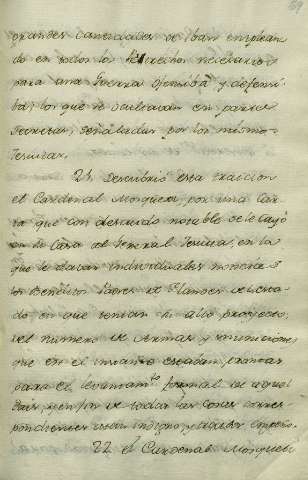 grandes cantidades se iban emplean
do en todos los Pertrechos necesarios
para una Guerra ofensiba y defensi
ba; los que se ocultaban en partes
secretas, señaladas por los mismos
Jesuitas.
21 Descubrió esta traicion
el Cardenal Monguera por una Car
ta que con descuido notable se le cayó
en la Casa al General Jesuita, en la
que le daban individuales noticias
los Benditos Padres de Flandes del esta
do en que tenian su alto proyecto;
del numero de Armas y municiones
que en el intanto estaban, prontas
para el levantamto. formal de aquel
Pais, y en fin de todas las cosas corres
pondientes a tan indigno y
22 el Cardenal Monguera